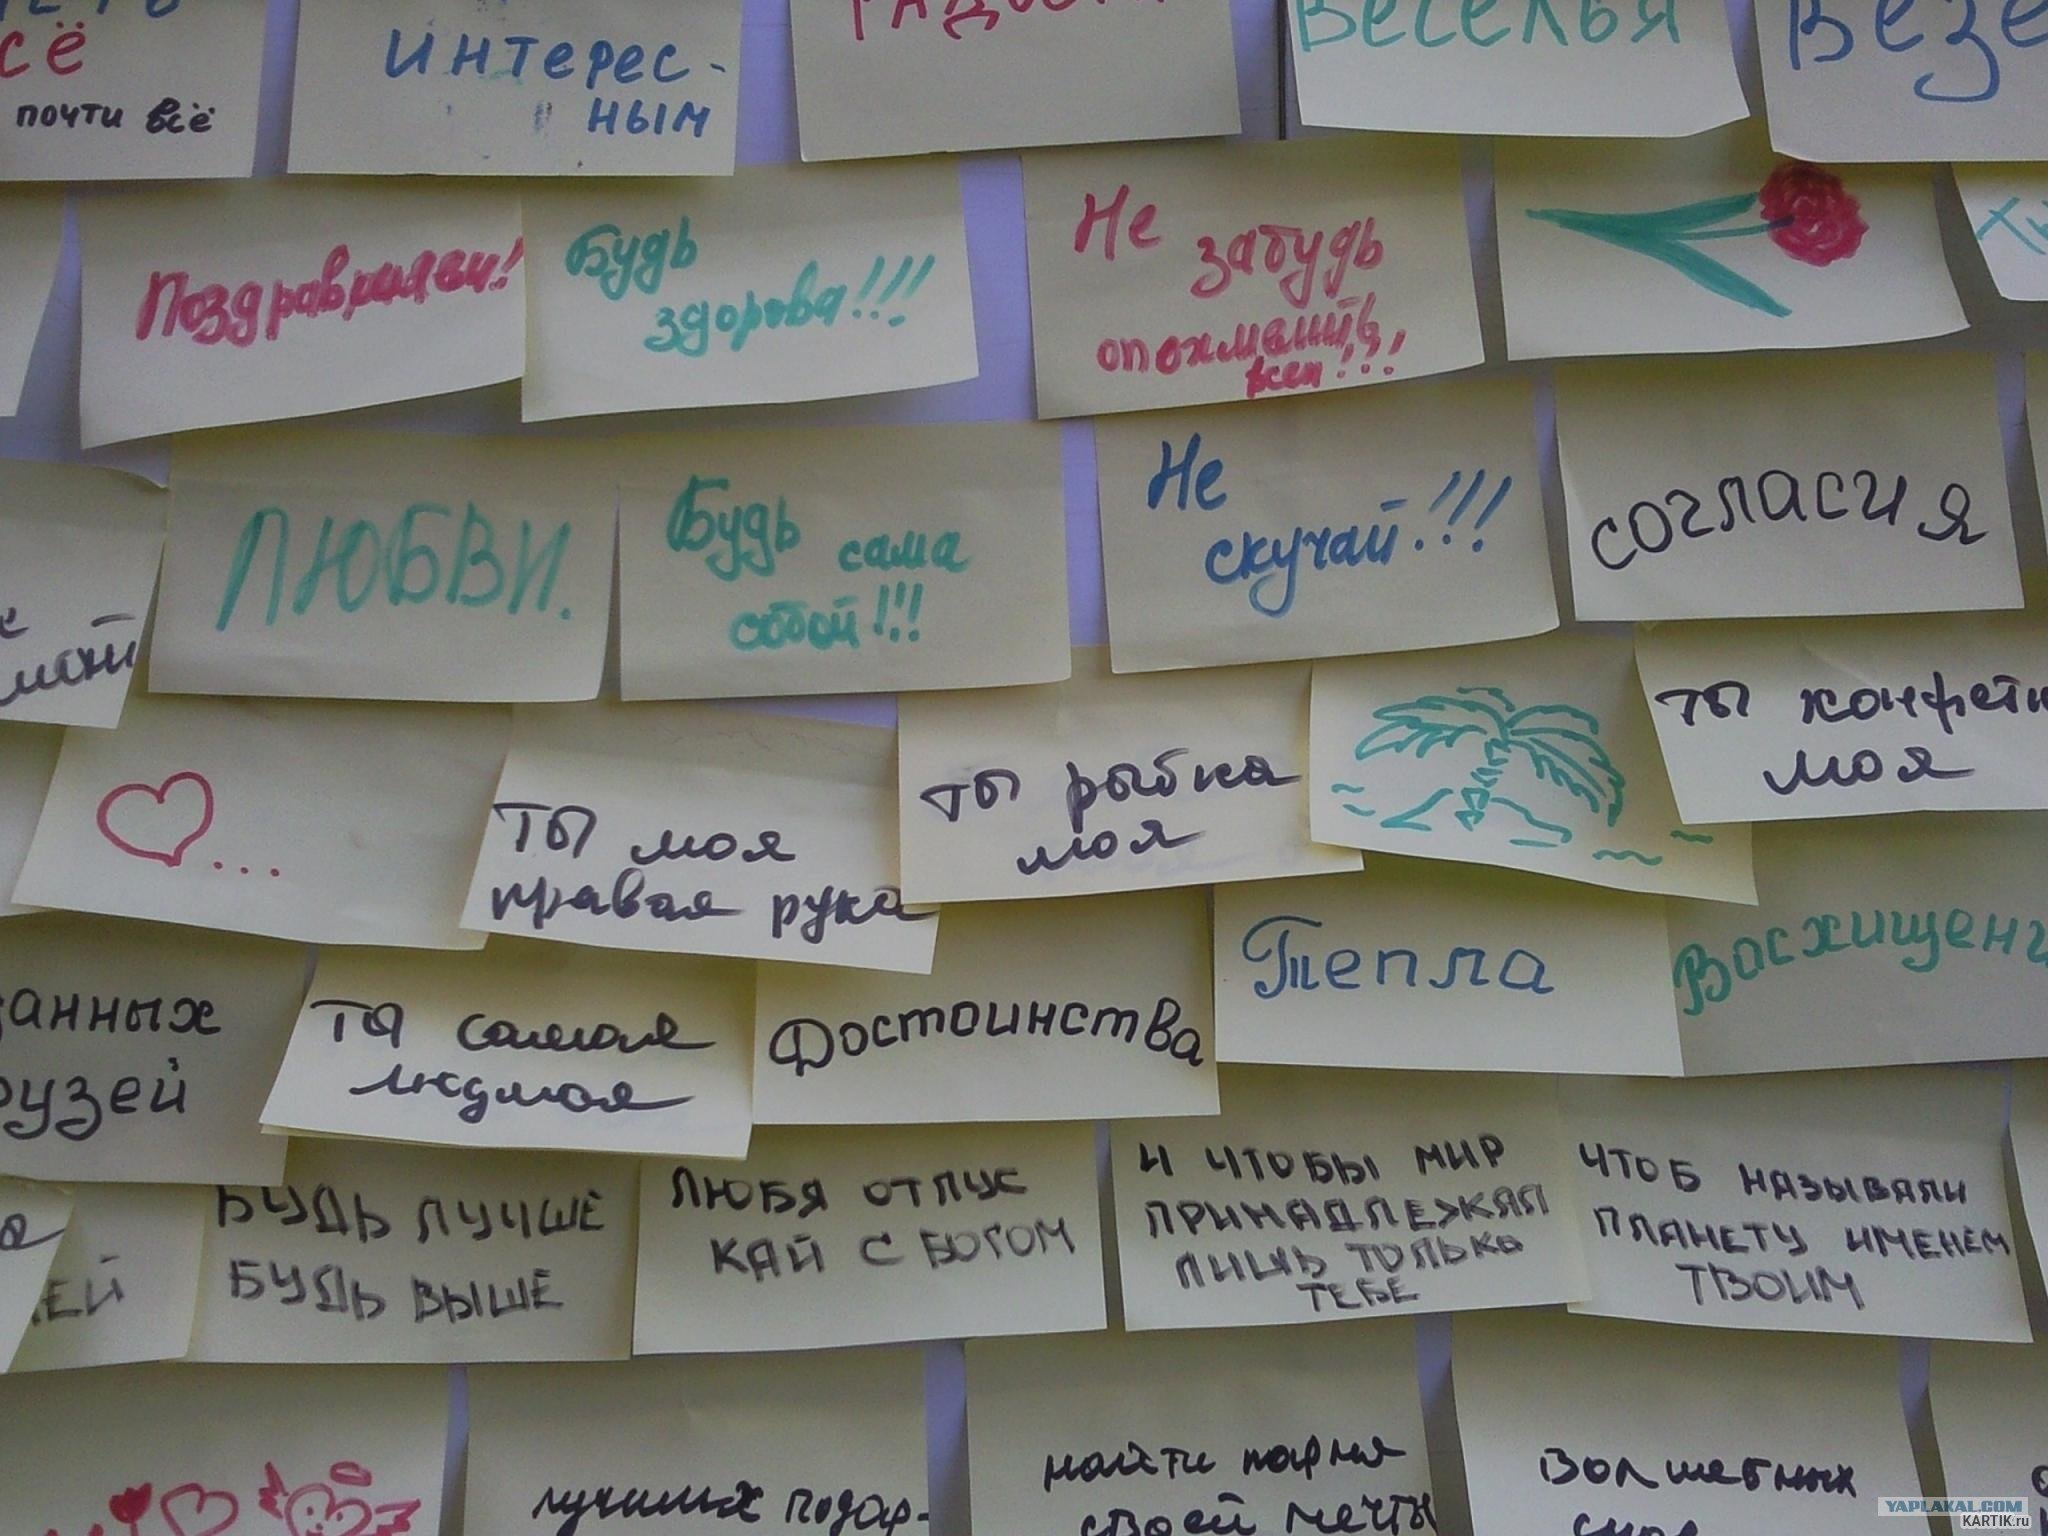 сё
почти всё
интерес-
ным
Веселья
Везе
Поздравляем!
Будь
здорова!!!
Не
забудь
опохмелить
всех!!!
ЛЮБВИ.
Будь сама
собой!!!
Не
скучай!!!
согласия
...
ты моя
правая рука
ты рыбка
моя
ты конфетк
моя
данных
рузей
ты самая
Достоинства
Тепла
Восхищени
ЕЙ
БУДЬ ЛУЧШЕ
БУДЬ ВЫШЕ
ЛЮБЯ ОТПУС
КАЙ С БОГОМ
И ЧТОБЫ МИР
ПРИНАДЛЕЖАЛ
ЛИШЬ ТОЛЬКО
ТЕБЕ
ЧТОБ НАЗЫВАЛИ
ПЛАНЕТУ ИМЕНЕМ
ТВОИМ
лучших подар-
найти парня
своей мечты
волшебных
YAPLAKAL.COM
KARTIK.ru